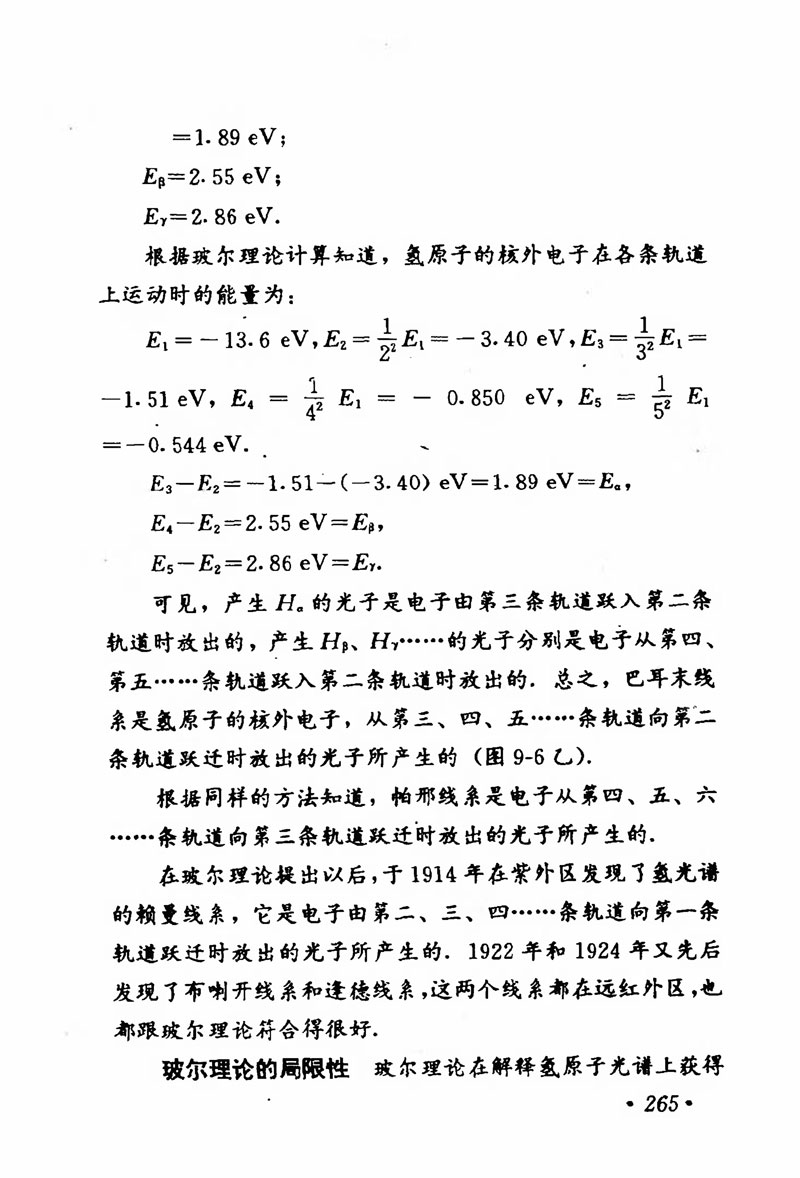 =1.89 eV;
Eβ=2.55 eV;
Eγ=2.86 eV.
根据玻尔理论计算知道，氢原子的核外电子在各条轨道
上运动时的能量为：
E₁=－13.6 eV,E₂=\frac{1}{2²}E₁=－3.40 eV,E₃=\frac{1}{3²}E₁=
－1.51 eV，E₄ = \frac{1}{4²} E₁ = － 0.850 eV，E₅ = \frac{1}{5²} E₁
=－0.544 eV.
E₃－E₂=－1.51－(－3.40) eV=1.89 eV=Eα,
E₄－E₂=2.55 eV=Eβ,
E₅－E₂=2.86 eV=Eγ.
可见，产生 Hα 的光子是电子由第三条轨道跃入第二条
轨道时放出的，产生 Hβ、Hγ……的光子分别是电子从第四、
第五……条轨道跃入第二条轨道时放出的．总之，巴耳末线
系是氢原子的核外电子，从第三、四、五……条轨道向第二
条轨道跃迁时放出的光子所产生的（图 9-6 乙）．
根据同样的方法知道，帕邢线系是电子从第四、五、六
……条轨道向第三条轨道跃迁时放出的光子所产生的．
在玻尔理论提出以后，于 1914 年在紫外区发现了氢光谱
的赖曼线系，它是电子由第二、三、四……条轨道向第一条
轨道跃迁时放出的光子所产生的．1922 年和 1924 年又先后
发现了布喇开线系和逢德线系，这两个线系都在远红外区，也
都跟玻尔理论符合得很好．
玻尔理论的局限性 玻尔理论在解释氢原子光谱上获得
·265·